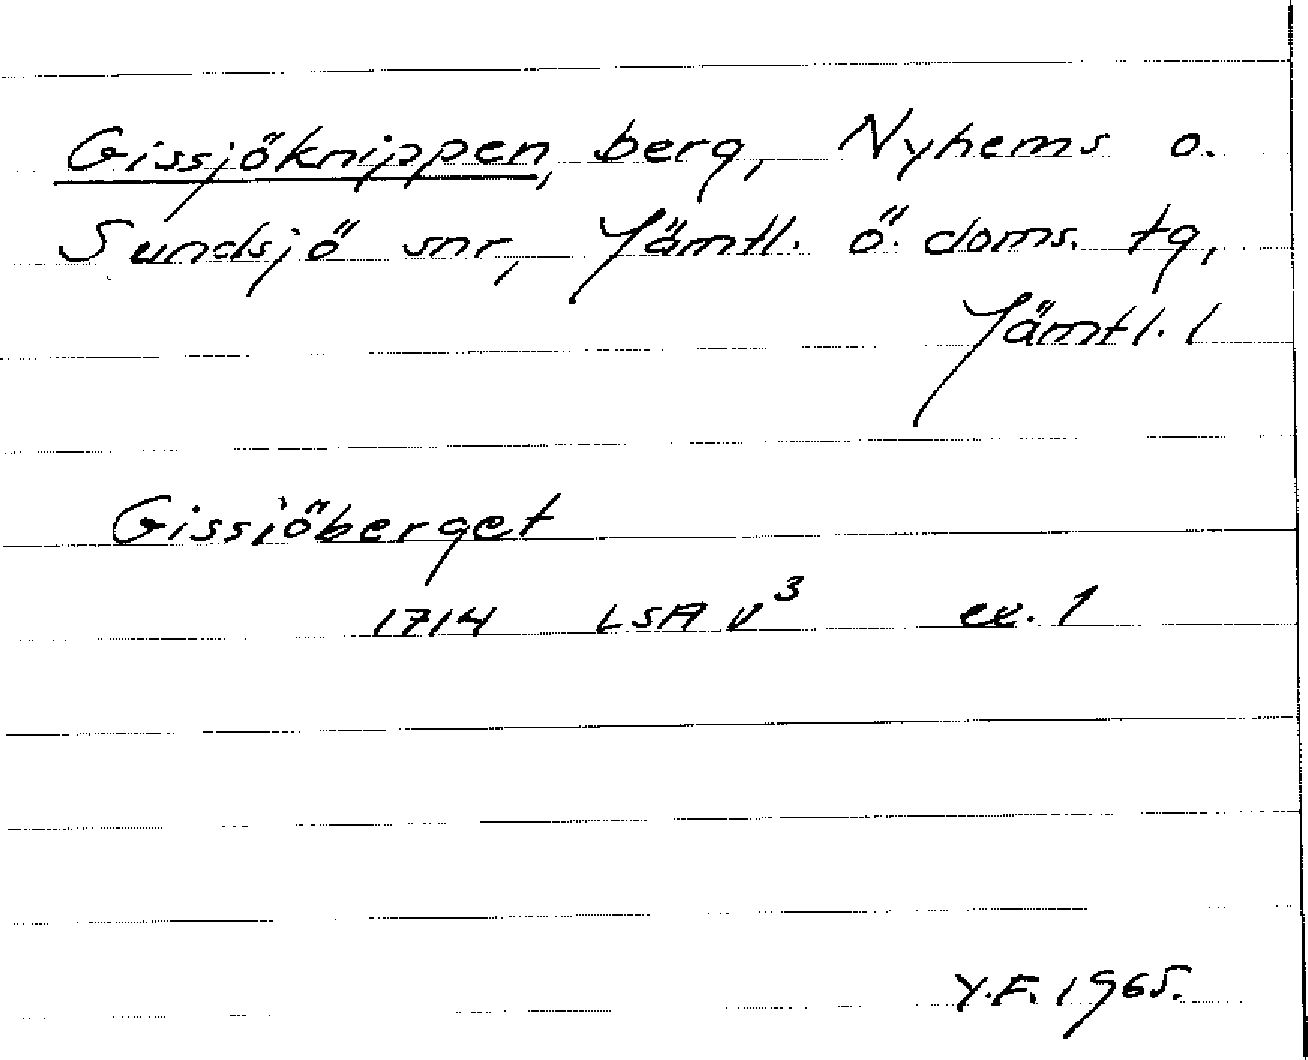 Gissjöknippen, berg, Nyhems o.
Sundsjö snr, Jämtl. ö. doms. tg,
Jämtl. l
Gissiöberget
1714 LSA V³ ex. 1
Y.F. 1965.